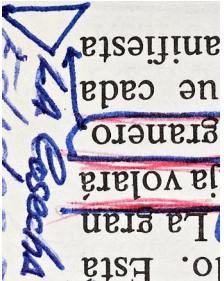 o. Esta
La gran
ja volará
granero
ue cada
anifiesta
LA Cosecha